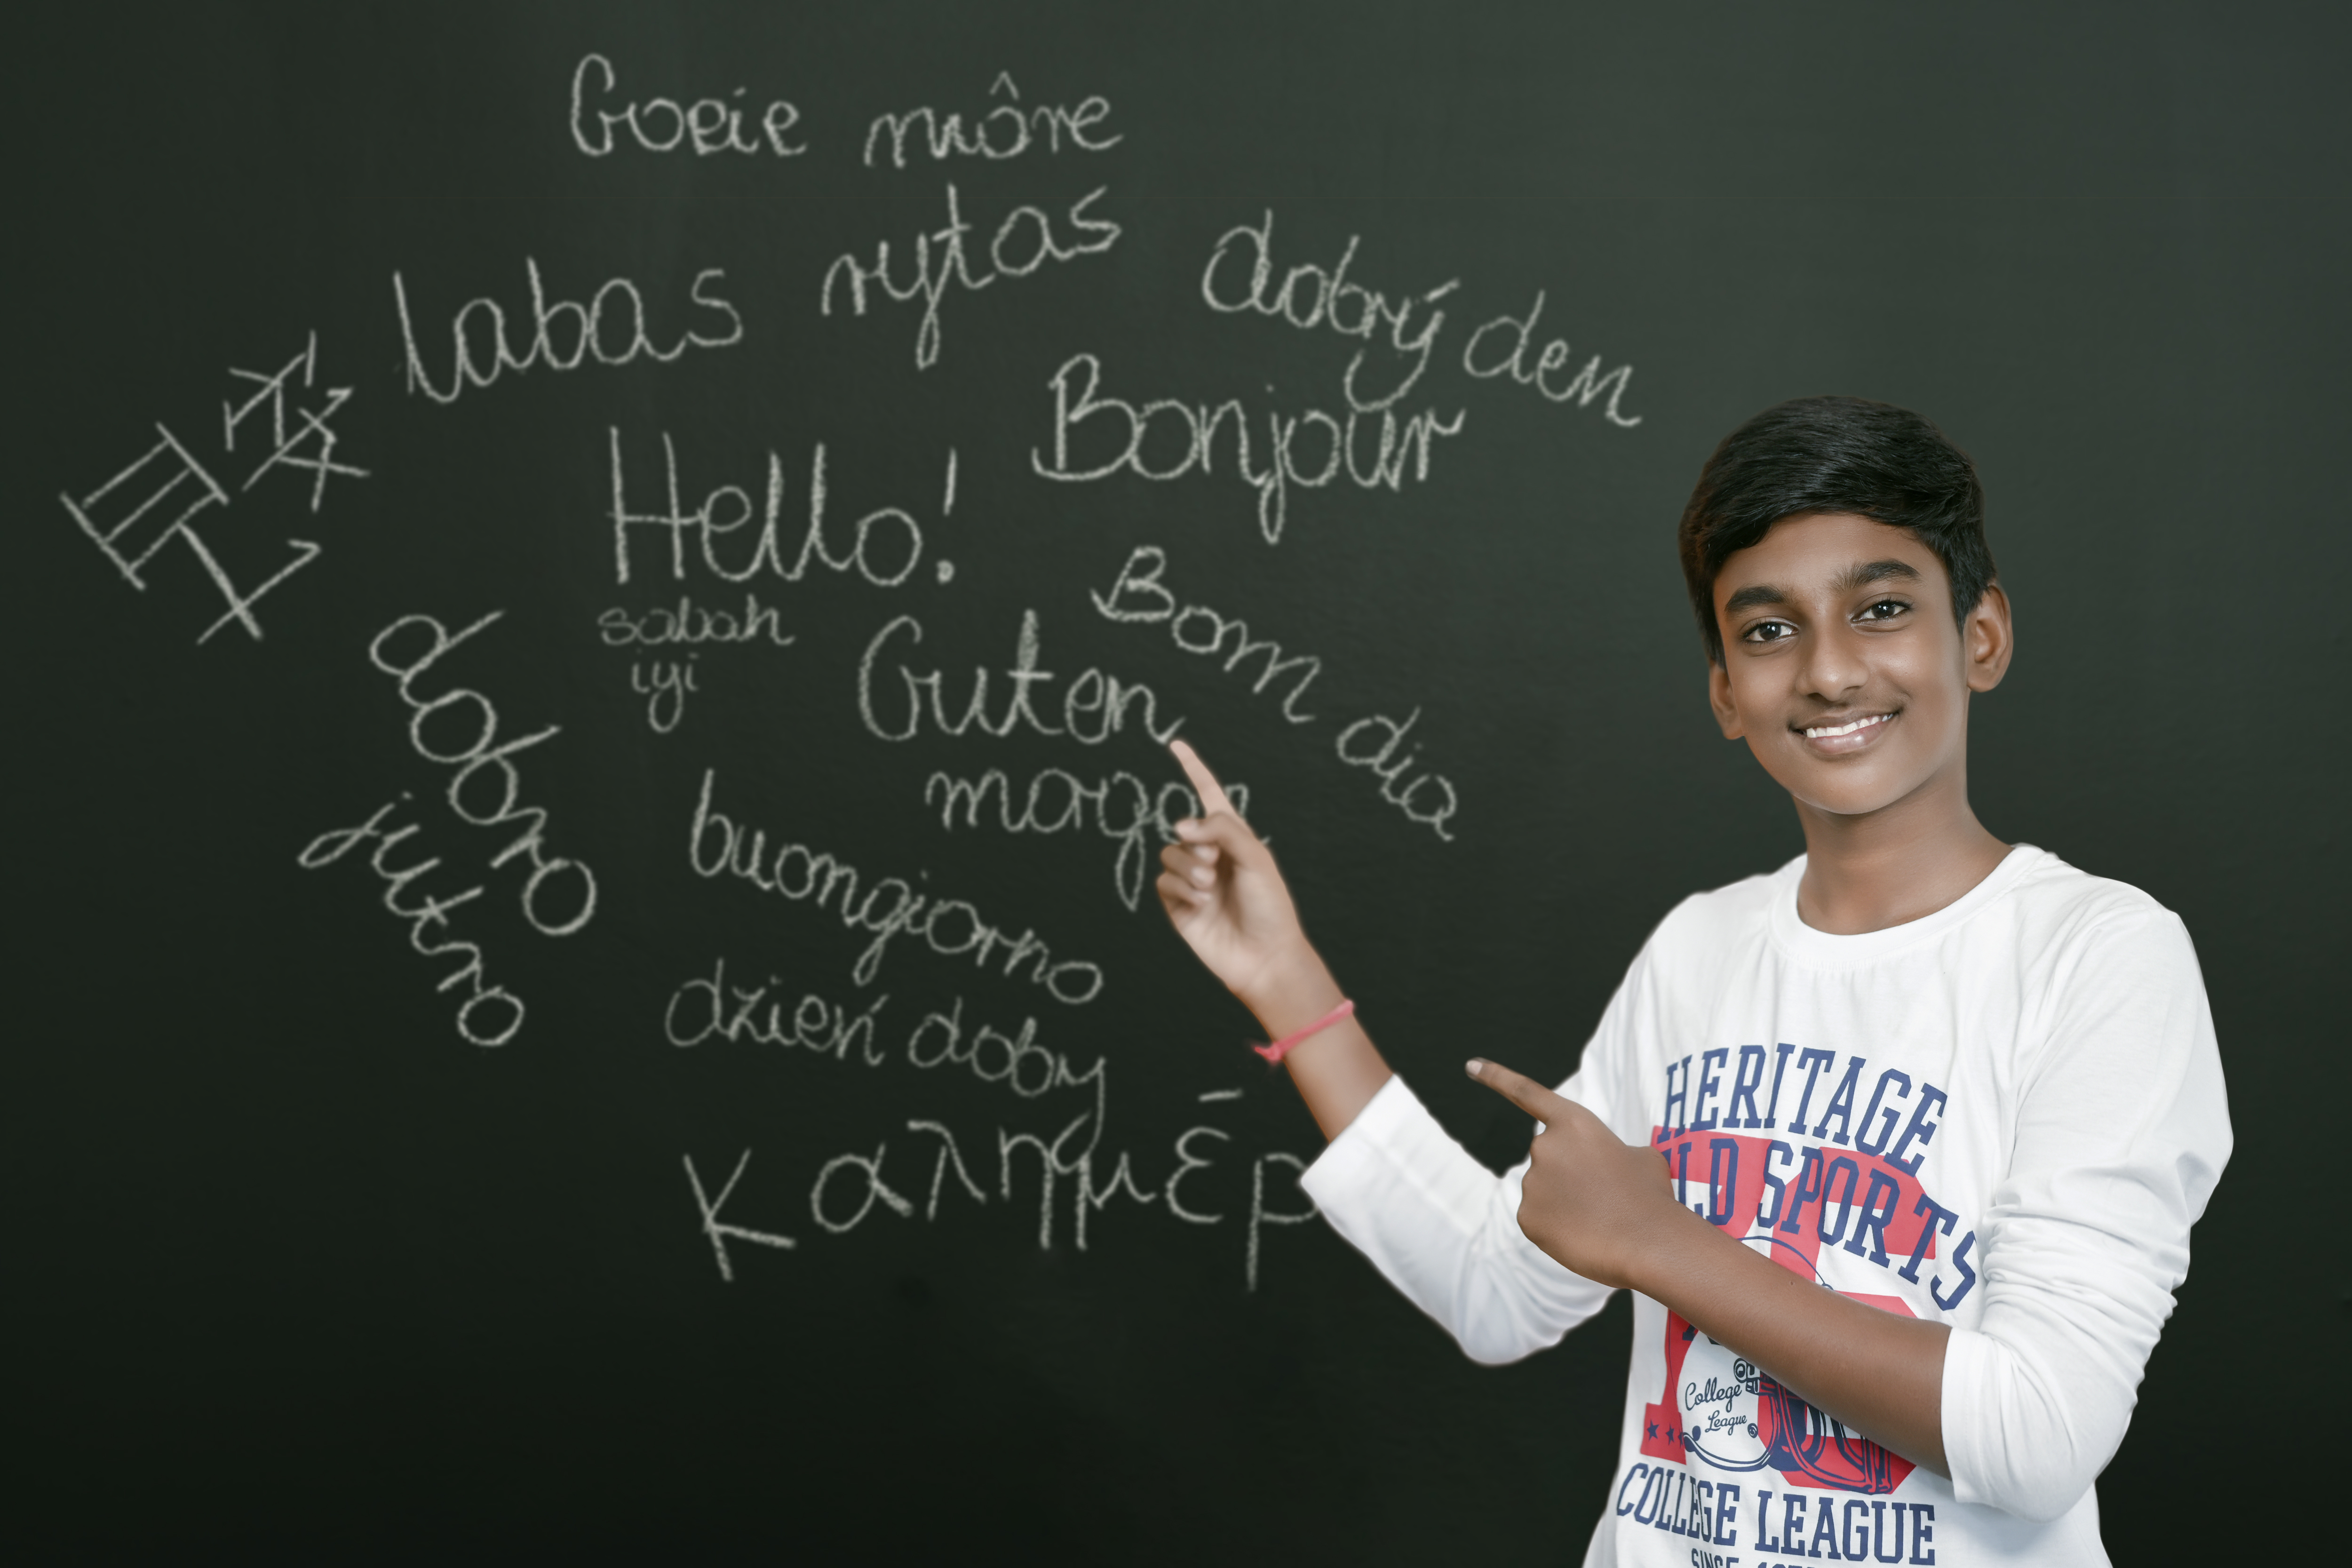 Goeie môre
labas rytas
dobrý den
早安
Bonjour
Hello!
sabah
iyi
Bom dia
Guten
dobro
jutro
buongiorno
dzień doby
Καλημέρ
HERITAGE
LD SPORTS
College
League
COLLEGE LEAGUE
SINCE